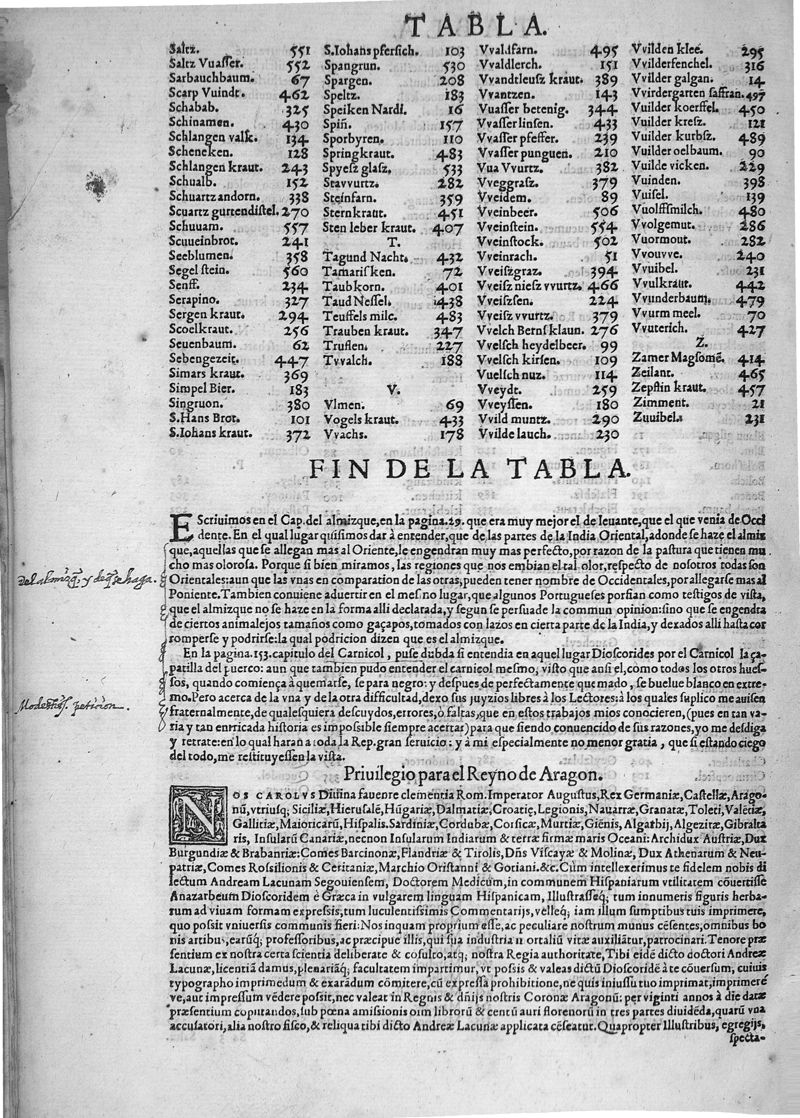 TABLA.
Saltz. 551
Saltz Vuasser. 552
Sarbauchbaum. 67
Scarp Vuindt. 462
Schabab. 325
Schinamen. 430
Schlangen valk. 134
Scheneken. 128
Schlangen kraut. 243
Schualb. 152
Schuartz andorn. 338
Scuartz gurtendistel. 270
Schuuam. 557
Scuueinbrot. 241
Seeblumen. 358
Segel stein. 560
Senff. 234
Serapino. 327
Sergen kraut. 294
Scoelkraut. 256
Seuenbaum. 62
Sebengezeit. 447
Simars kraut. 369
Simpel Bier. 183
Singruon. 380
S. Hans Brot. 101
S. Iohans kraut. 372
S. Iohans pfersich. 103
Spangrun. 530
Spargen. 208
Speltz. 183
Speiken Nardi. 16
Spiñ. 157
Sporbyren. 110
Spring kraut. 483
Spyesz glasz. 533
Stavvurtz. 282
Steinfarn. 359
Sternkraut. 451
Sten leber kraut. 407
T.
Tagund Nacht. 432
Tamarisken. 72
Taubkorn. 401
Taud Nessel. 438
Teuffels milc. 483
Trauben kraut. 347
Truflen. 227
Tvvalch. 188
V.
Vlmen. 69
Vogels kraut. 433
Vvachs. 178
Vvaldfarn. 495
Vvaldlerch. 151
Vvandtleusz kraut. 389
Vvantzen. 143
Vuasser betenig. 344
Vvasser linsen. 433
Vvasser pfeffer. 239
Vvasser punguen. 210
Vua Vvurtz. 382
Vveggrasz. 379
Vveidem. 89
Vveinbeer. 506
Vveinstein. 554
Vveinstock. 502
Vveinrach. 51
Vveiszgraz. 394
Vveisz niesz vvurtz. 466
Vveiszsen. 224
Vveisz vvurtz. 379
Vvelch Berns klaun. 276
Vvelsch heydelbeer. 99
Vvelsch kirsen. 109
Vuelsch nuz. 114
Vveydt. 259
Vveyssen. 180
Vvild muntz. 290
Vvilde lauch. 230
Vvilden klee. 295
Vvilderfenchel. 316
Vvilder galgan. 14
Vvirdergarten saffran. 497
Vuilder koerffel. 450
Vuilder kresz. 121
Vvilder kurbsz. 489
Vuilder oelbaum. 90
Vuilde vicken. 229
Vuinden. 398
Vuisel. 139
Vuolffsmilch. 480
Vvolgemut. 286
Vuormout. 282
Vvouvve. 240
Vvuibel. 231
Vvulkraut. 442
Vvunderbaum. 479
Vvurm meel. 70
Vvuterich. 427
Z.
Zamer Magsomē. 414
Zeilant. 465
Zepstin kraut. 457
Zimment. 21
Zuuibel. 231
FIN DE LA TABLA.
EScriuimos en el Cap. del almizque, en la pagina. 29. que era muy mejor el de leuante, que el que venia de Occi
dente. En el qual lugar quisimos dar à entender, que de las partes de la India Oriental, adonde se haze el almiz
que, aquellas que se allegan mas al Oriente, le engendran muy mas perfecto, por razon de la pastura que tienen mu
cho mas olorosa. Porque si bien miramos, las regiones que nos embian el tal olor, respecto de nosotros todas son
Orientales: aun que las vnas en comparation de las otras, pueden tener nombre de Occidentales, por allegarse mas al
Poniente. Tambien conuiene aduertir en el mesmo lugar, que algunos Portugueses porfian como testigos de vista,
que el almizque no se haze en la forma alli declarada, y segun se persuade la commun opinion: sino que se engendra
de ciertos animalejos tamaños como gaçapos, tomados con lazos en cierta parte de la India, y dexados alli hasta cor
romperse y podrirse: la qual podricion dizen que es el almizque.
En la pagina. 153. capitulo del Carnicol, puse dubda si entendia en aquel lugar Dioscorides por el Carnicol la ça-
patilla del puerco: aun que tambien pudo entender el carnicol mesmo, visto que ansi el, como todos los otros hues-
sos, quando acà quemarse, se para negro: y despues de perfectamente quemado, se buelue blanco en extre-
mo. Pero acerca de la vna y de la otra difficultad, dexo sus juyzios libres à los Lectores: à los quales suplico me auisen
fraternalmente, de qualesquiera descuydos, errores, o faltas, que en estos trabajos mios conocieren, (pues en tan va-
ria y tan enrricada historia es impossible siempre acertar) para que siendo conuencido de sus razones, yo me desdiga
y retrate: en lo qual haran a toda la Rep. gran seruicio: y à mi especialmente no menor gratia, que si estando ciego
del todo, me restituyessen la vista.
Del almizq̃. y deq̃ se haga.
Modestiss. peticion.
Priuilegio para el Reyno de Aragon.
NOS CAROLVS Diuina fauente clementia Rom. Imperator Augustus, Rex Germaniæ, Castellæ, Arago-
nū, vtriusq; Siciliæ, Hierusalē, Hūgariæ, Dalmatiæ, Croatię, Legionis, Nauarræ, Granatæ, Toleti, Valētiæ,
Gallitiæ, Maioricarū, Hispalis, Sardiniæ, Cordubæ, Corsicæ, Murtiæ, Giēnis, Algarbij, Algezitæ, Gibralta
ris, Insularū Canariæ, necnon Insularum Indiarum & terræ firmæ maris Oceani: Archidux Austriæ, Dux
Burgundiæ & Brabantiæ: Comes Barcinonæ, Flandriæ & Tirolis, Dn̄s Viscayæ & Molinæ, Dux Athenarum & Neu-
patriæ, Comes Rossilionis & Ceritaniæ, Marchio Oristanni & Gotiani. &c. Cùm intellexerimus te fidelem nobis di
lectum Andream Lacunam Segouiensem, Doctorem Medicum, in communem Hispaniarum vtilitatem cōuertisse
Anazarbeum Dioscoridem è Græca in vulgarem linguam Hispanicam, Illustrasseq; tum innumeris figuris herba-
rum ad viuam formam expressis, tum luculentissimis Commentarijs, velleq; iam illum sumptibus tuis imprimere,
quo possit vniuersis communis fieri: Nos inquam proprium esse, ac peculiare nostrum munus cēsentes, omnibus bo
nis artibus, earūq; professoribus, ac præcipue illis, qui sua industria mortaliū vitæ auxiliātur, patrocinari. Tenore præ
sentium ex nostra certa scientia deliberate & cōsulto, atq; nostra Regia authoritate, Tibi eidē dicto doctori Andreæ
Lacunæ, licentiā damus, plenariāq; facultatem impartimur, vt possis & valeas dictū Dioscoridē à te cōuersum, cuiuis
typographo imprimedum & exarādum cōmitere, cū expressa prohibitione, ne quis iniussu tuo imprimat, imprimere
ve, aut impressum vēdere possit, nec valeat in Regnis & dn̄ijs nostris Coronæ Aragonū: per viginti annos à die datæ
præsentium cōputandos, sub pœna amissionis oīm librorū & centū auri florenorū in tres partes diuidēda, quarū vna
accusatori, alia nostro fisco, & reliqua tibi dicto Andreæ Lacunæ applicata cēseatur. Quapropter Illustribus, egregijs,
specta-